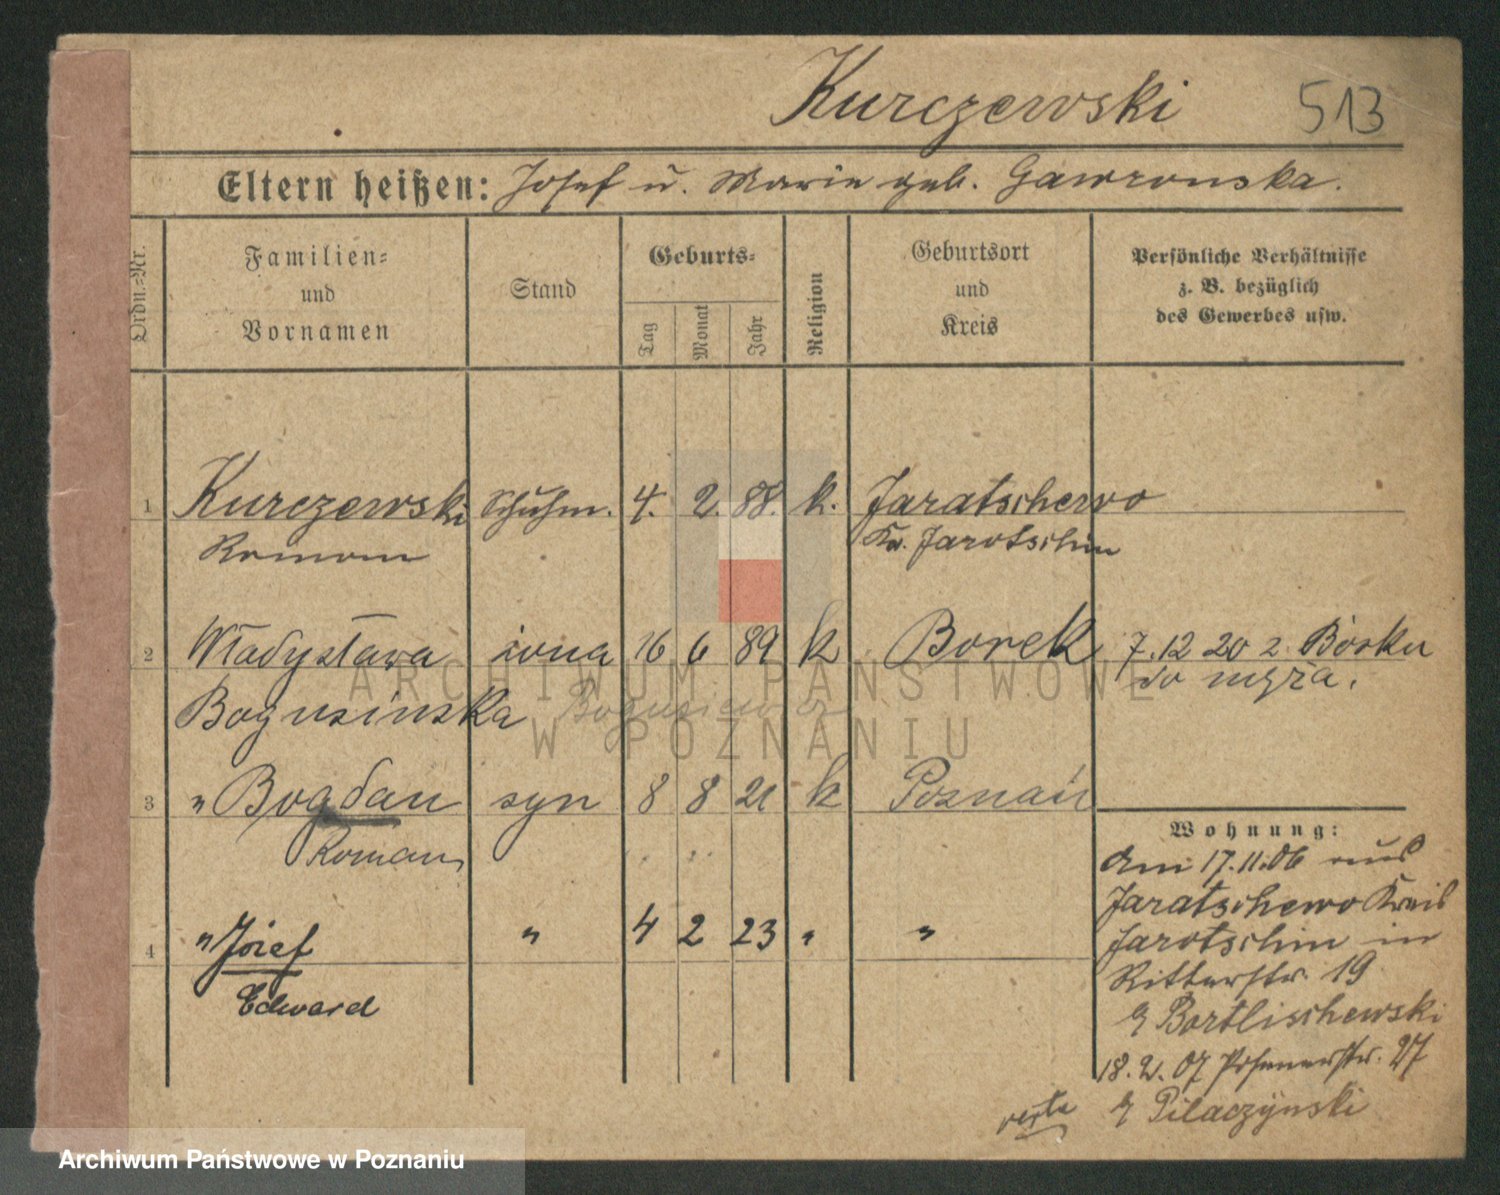 Kurczewski 513
Eltern heißen: Josef u. Marie geb. Gawronska.
Ordn.-Nr.
Familien-
und
Vornamen
Stand
Geburts-
Tag Monat Jahr
Religion
Geburtsort
und
Kreis
Persönliche Verhältnisse
z. B. bezüglich
des Gewerbes usw.
1 Kurczewski Schuhm. 4. 2. 88. k. Jaratschewo
Roman Kr. Jarotschin
2 Władysława żona 16 6 89 k Borek 7.12 20 z Borku
Bogusińska do męża.
3 " Bogdan syn 8 8 21 k Poznań
Roman
4 " Józef " 4 2 23 " "
Edward
Wohnung:
Am 17.11.06 aus
Jaratschewo Kreis
Jarotschin in
Ritterstr. 19
Bartlischewski
18. 2. 07 Posenerstr. 27
Pilaczynski
verte
ARCHIWUM PAŃSTWOWE
W POZNANIU
Archiwum Państwowe w Poznaniu